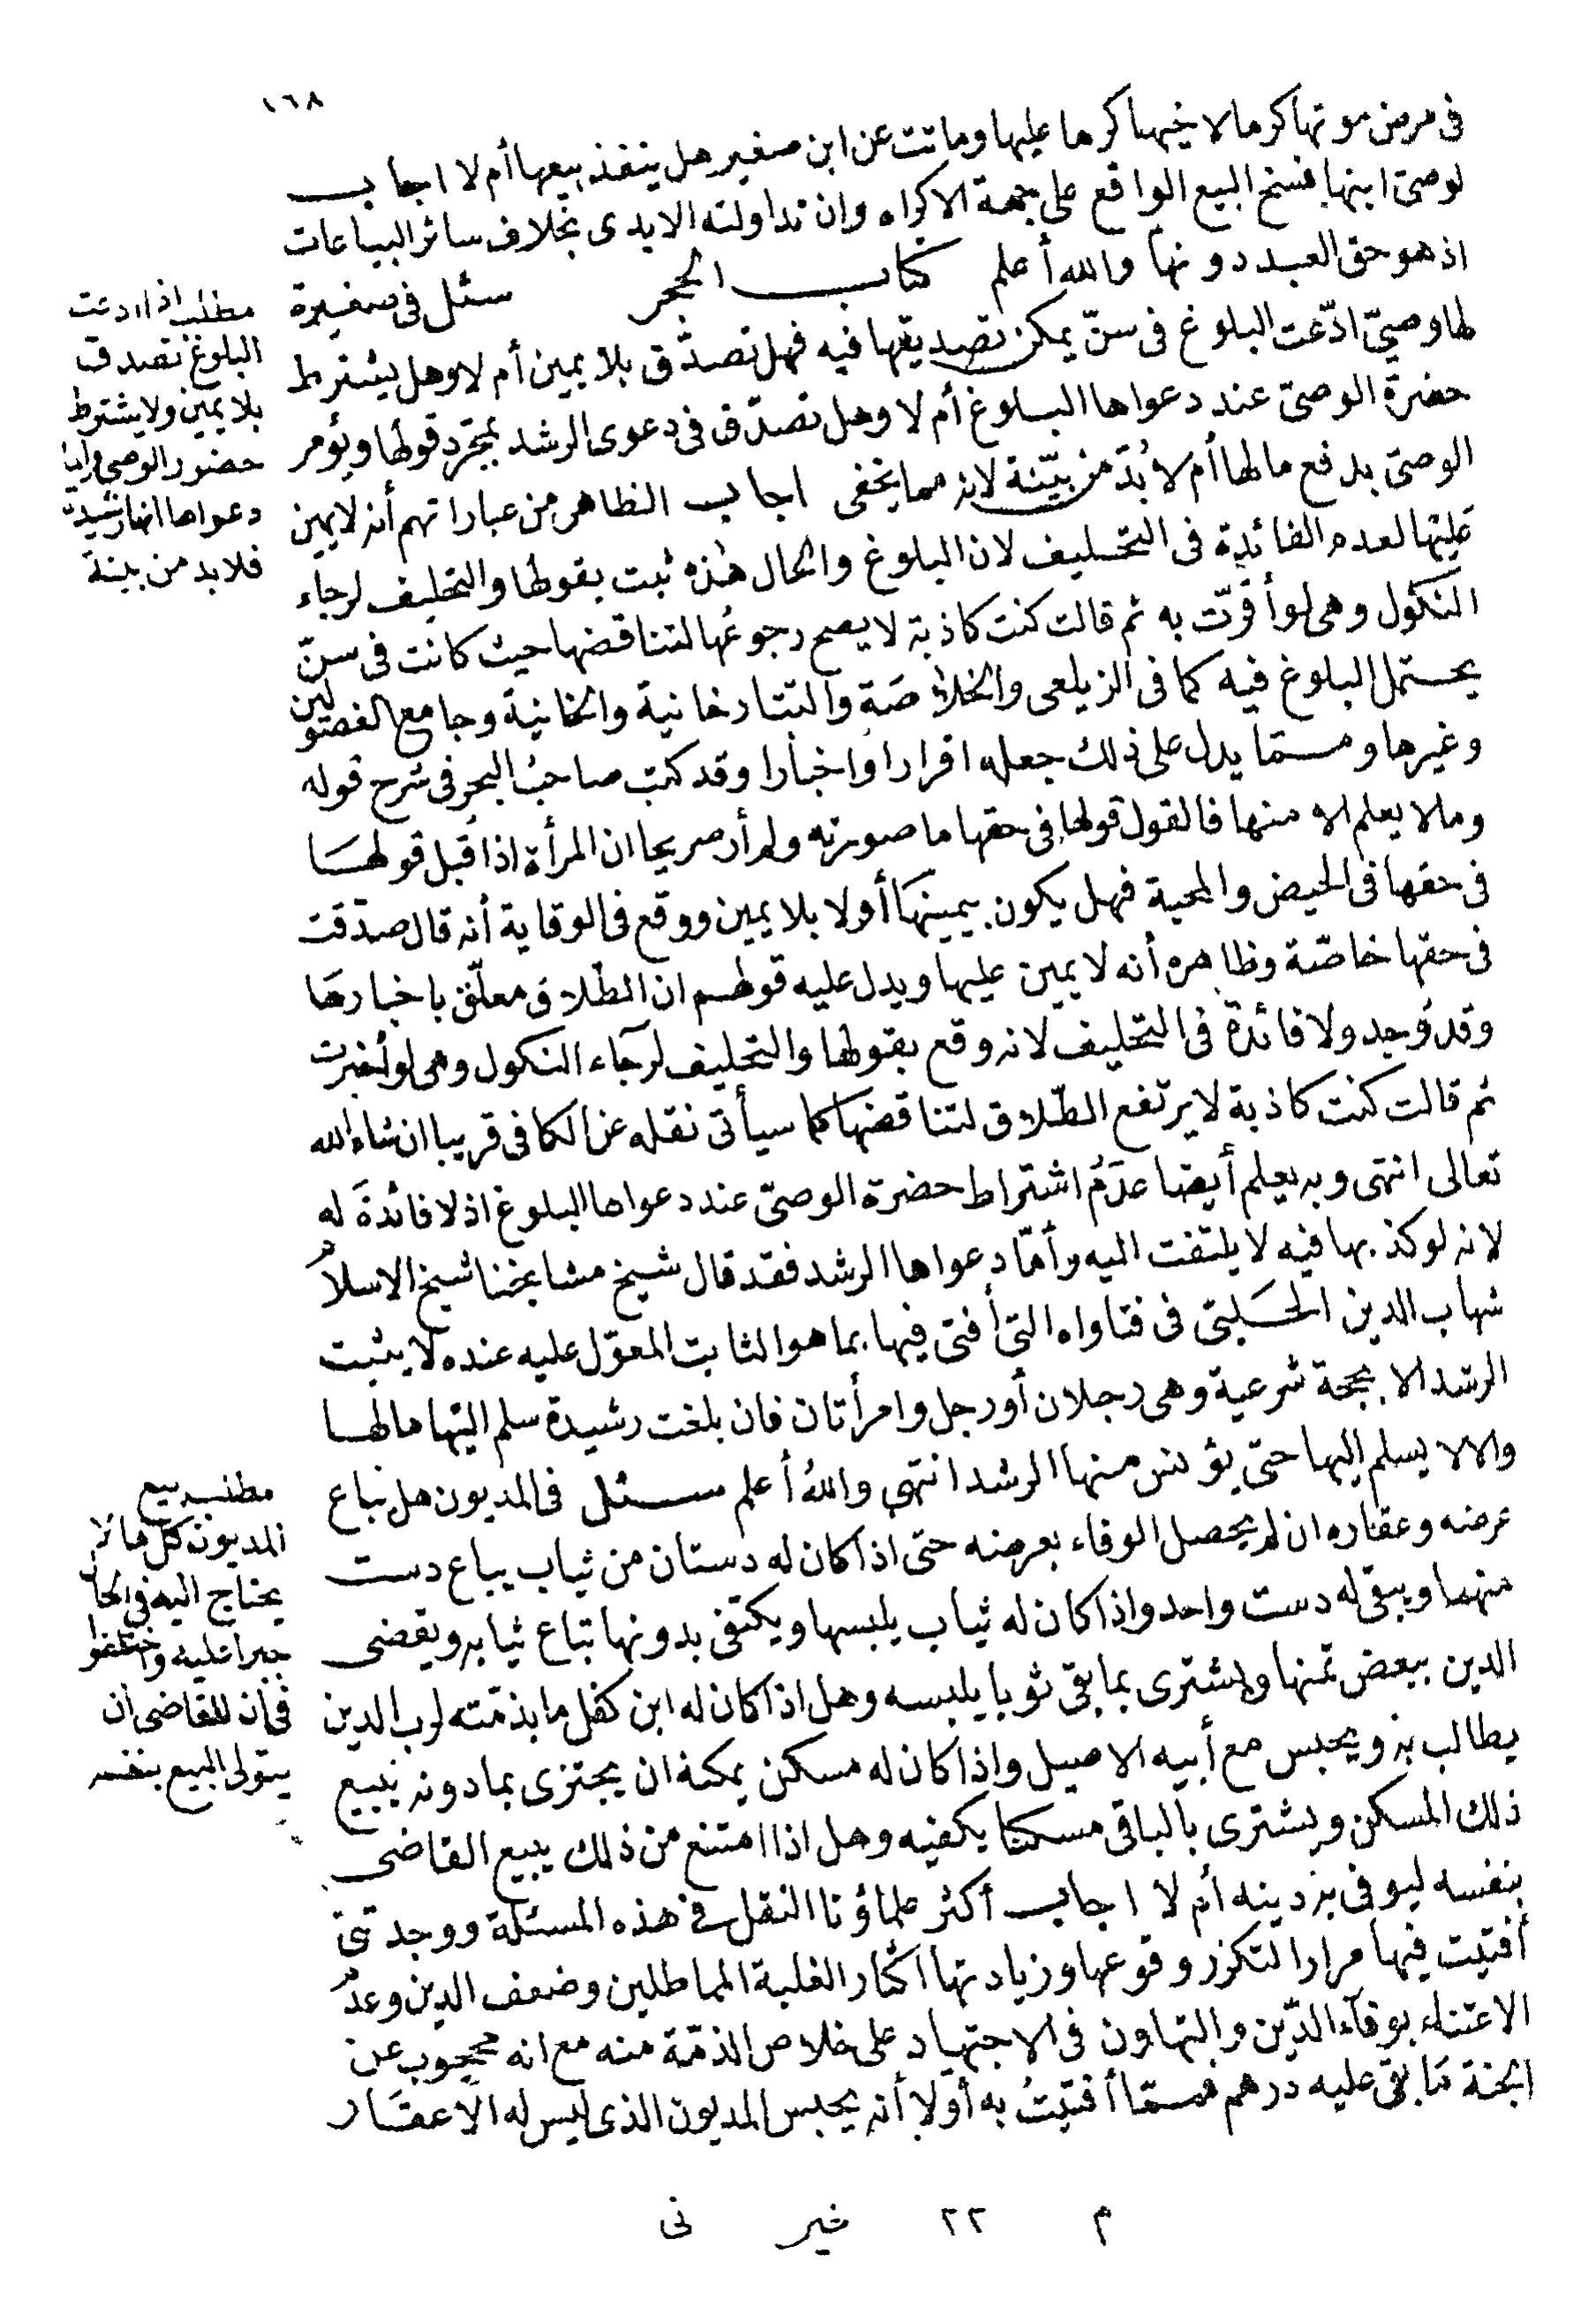 ١٦٨
فى مرض موتها كرما لاخيها كرها عليها وماتت عن ابن صغير هل ينفذ بيعها أم لا اجاب
لوصى ابنها فسخ البيع الواقع على جهة الاكراه وان تداولته الايدى بخلاف سائر البياعات
اذ هو حق العبد دونها والله أعلم كتاب الحجر سئل فى صغيرة
لها وصىّ ادّعت البلوغ فى سنّ يمكن تصديقها فيه فهل تصدّق بلا يمين أم لا وهل يشترط
حضرة الوصىّ عند دعواها البلوغ أم لا وهل تصدّق فى دعوى الرشد بمجرّد قولها ويؤمر
الوصىّ بدفع مالها أم لا بُدّ من بيّنة لانه مما يخفى اجاب الظاهر من عباراتهم أنه لا يمين
عَليها لعدم الفائدة فى التحليف لان البلوغ والحال هذه ثبت بقولها والتحليف لرجاء
النكول وهى لو أقرّت به ثم قالت كنت كاذبة لا يصح رجوعُها لتناقضها حيث كانت فى سنّ
يحتمل البلوغ فيه كما فى الزيلعى والخلاصَة والتتارخانية والخانية وجامع الفصولين
وغيرها وممّا يدل على ذلك جعله اقرارا واخبارا وقد كتب صاحبُ البحر فى شرح قوله
وملا يعلم الا منها فالقول قولها فى حقها ما صورته ولم أر صريحا ان المرأة اذا قبل قولهَا
فى حقها فى الحيض والمحبة فهل يكون بيمينهَا أولا بلا يمين ووقع فى الوقاية أنه قال صدّقت
فى حقها خاصّة وظاهره أنه لا يمين عليها ويدل عليه قولهم ان الطّلاق معلّق باخبارهَا
وقد وُجد ولا فائدة فى التحليف لانه وقع بقولها والتحليف لرجآء النكول وهى لو أخبرت
ثم قالت كنت كاذبة لا يرتفع الطّلاق لتناقضها كما سيأتى نقله عن الكافى قريبا ان شاء الله
تعالى انتهى وبه يعلم أيضا عدَمُ اشتراط حضرة الوصىّ عند دعواها البلوغ اذ لا فائدةَ له
لانه لو كذبها فيه لا يلتفت اليه وأمّا دعواها الرشد فقد قال شيخ مشايخنا شيخ الاسلام
شهاب الدين الحَلبتى فى فتاواه التى أفتى فيها بما هو الثابت المعوّل عليه عنده لا يثبت
الرشد الا بحجة شرعية وهى رجلان أو رجل وامرأتان فان بلغت رشيدة سلم اليْها مالها
والا لا يسلم إليها حتىّ يؤنس منها الرشد انتهى واللهُ أعلم سئل فى المديون هل يباع
عرضه وعقاره ان لم يحصل الوفاء بعرضه حتى اذا كان له دستان من ثياب يباع دست
منهما ويبقى له دست واحد واذا كان له ثياب يلبسها ويكتفى بدونها تباع ثيابه ويقضى
الدين ببعض ثمنها ويشترى بما بقى ثوبا يلبسه وهل اذا كان له ابن كفل ما بذمّته لرب الدين
يطالب به ويحبس مع أبيه الاصيل واذا كان له مسكن يمكنه ان يجتزى بما دونه يبيع
ذلك المسكن ويشترى بالباقى مسكنا يكفيه وهل اذا امتنع من ذلك يبيع القاضى
بنفسه ليوفى به دينه أم لا اجاب أكثر علماؤنا النقل فى هذه المسئلة ووجدتنى
أفتيت فيها مرارا لتكرر وقوعها وزيادتها اكثار الغلبة المماطلين وضعف الدين وعدم
الاعتناء بوفآء الدّين والتهاون فى الاجتهاد على خلاص الذمّة منه مع انه محجوب عن
الجنة مَا بقى عليه درهم فممّا أفتيتُ به أولا أنه يحبس المديون الذى ليس له الّا عقار
مطلب اذا ادعت
البلوغ تصدق
بلا يمين ولا يشترط
حضور الوصى واما
دعواها انها رشيدة
فلابد من بينة
مطلب يبيع
المديون كل مالا
يحتاج اليه فى الحال
جبرا عليه واختلفوا
فى ان للقاضى ان
يتولى البيع بنفسه
م ٢٢ خير نى